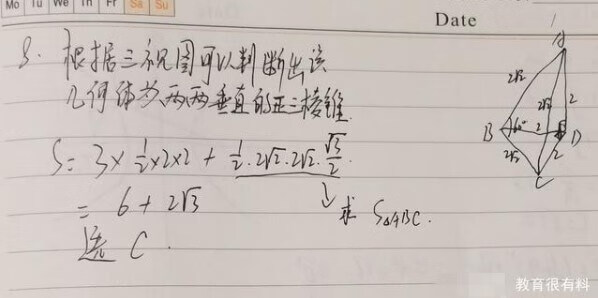 Mo Tu We Th Fr Sa Su
Date
3. 根据三视图可以判断出该
几何体为两两垂直的正三棱锥.
S = 3 × 1/2 × 2 × 2 + 1/2 · 2√2 · 2√2 · √3/2
↓ 求 S△ABC.
= 6 + 2√3
选 C.
A
2√2
2√2
2
B
60°
2
D
2√2
2
C
教育很有料